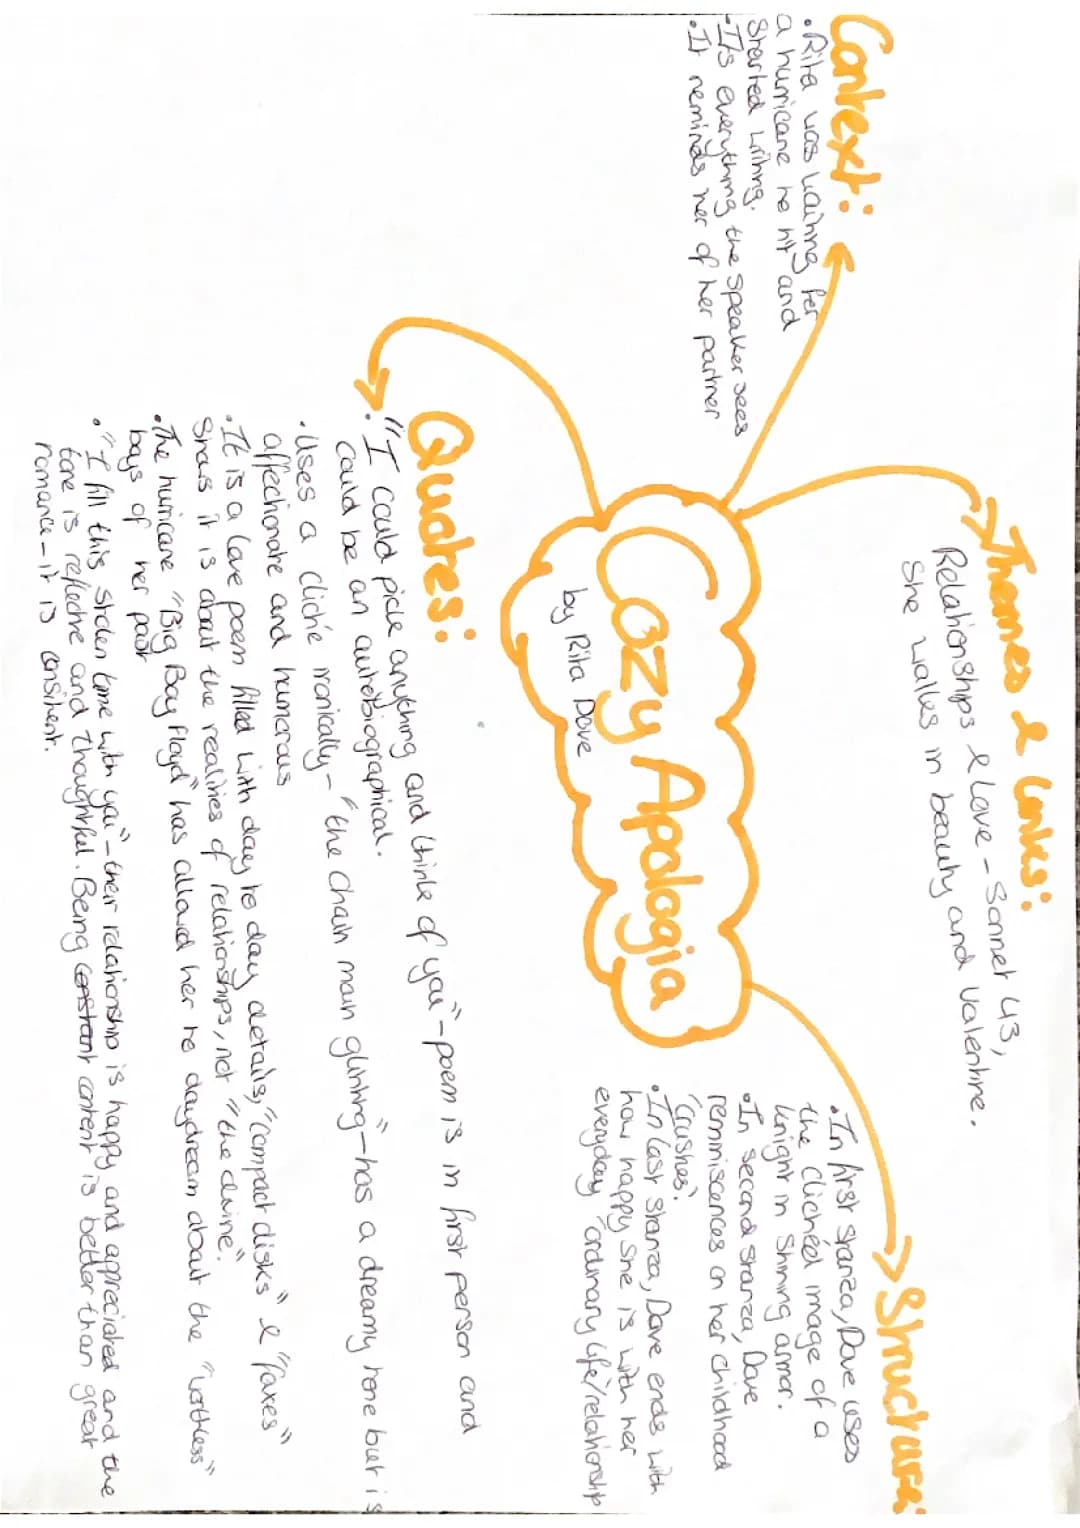 Cozy Apologia
by Rita Dove
Context:
• Rita was waiting for
a hurricane to hit and
started writing.
• Its everything the speaker sees
• It reminds her of her partner
Themes & Links:
Relationships & Love - Sonnet 43,
She walks in beauty and Valentine.
Structure:
• In first stanza, Dove uses
the clichéd image of a
knight in shining armor.
• In second stanza, Dove
remmiscences on her childhood
"crushes".
• In last stanza, Dove ends with
how happy she is with her
everyday "ordinary life/relationship
Quotes:
• "I could pick anything and think of you" - poem is in first person and
could be an autobiographical.
• Uses a cliché ironically - "the chain main glinting" - has a dreamy tone but is
affectionate and humorous
• It is a love poem filled with day to day details, "compact disks" & "faxes"
Shows it is about the realities of relationships, not "the divine".
• The hurricane "Big Bay Floyd" has allowed her to daydream about the "worthless"
boys of her past
• "I fill this stolen time with you" - their relationship is happy and appreciated and the
tone is reflective and thoughtful. Being constant content is better than great
romance - it is consistent.